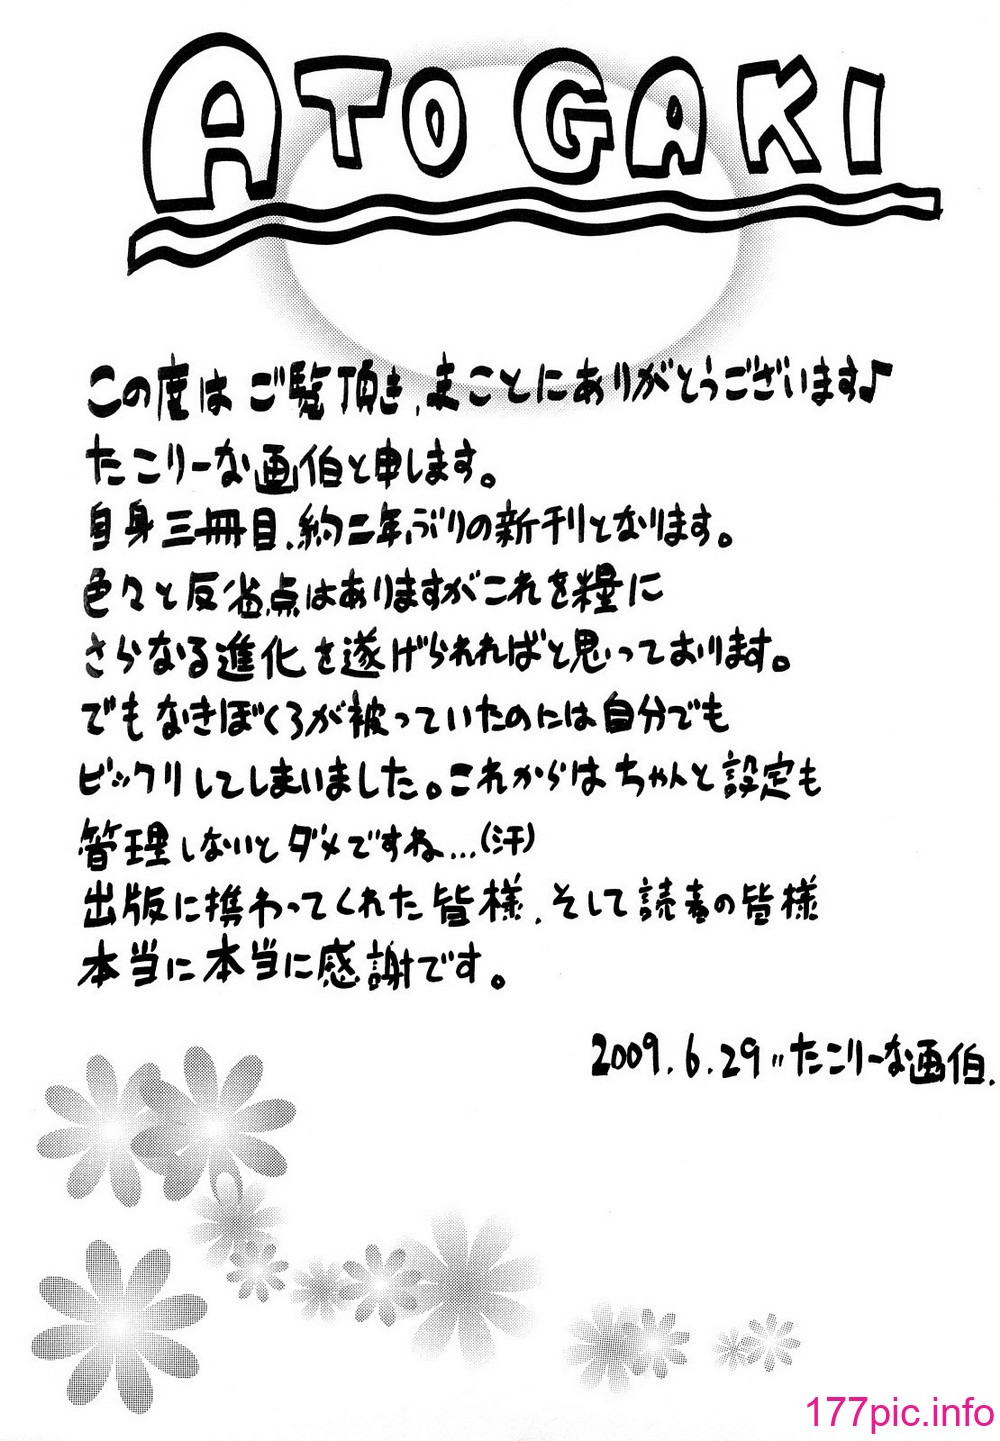 ATOGAKI
この度はご覧頂き、まことにありがとうございます♪
たこリーな画伯と申します。
自身三冊目、約二年ぶりの新刊となります。
色々と反省点はありますがこれを糧に
さらなる進化を遂げられればと思っております。
でもなきぼくろが被っていたのには自分でも
ビックリしてしまいました。これからはちゃんと設定も
管理しないとダメですね…(汗)
出版に携わってくれた皆様、そして読者の皆様
本当に本当に感謝です。
2009.6.29〃たこリーな画伯.
177pic.info